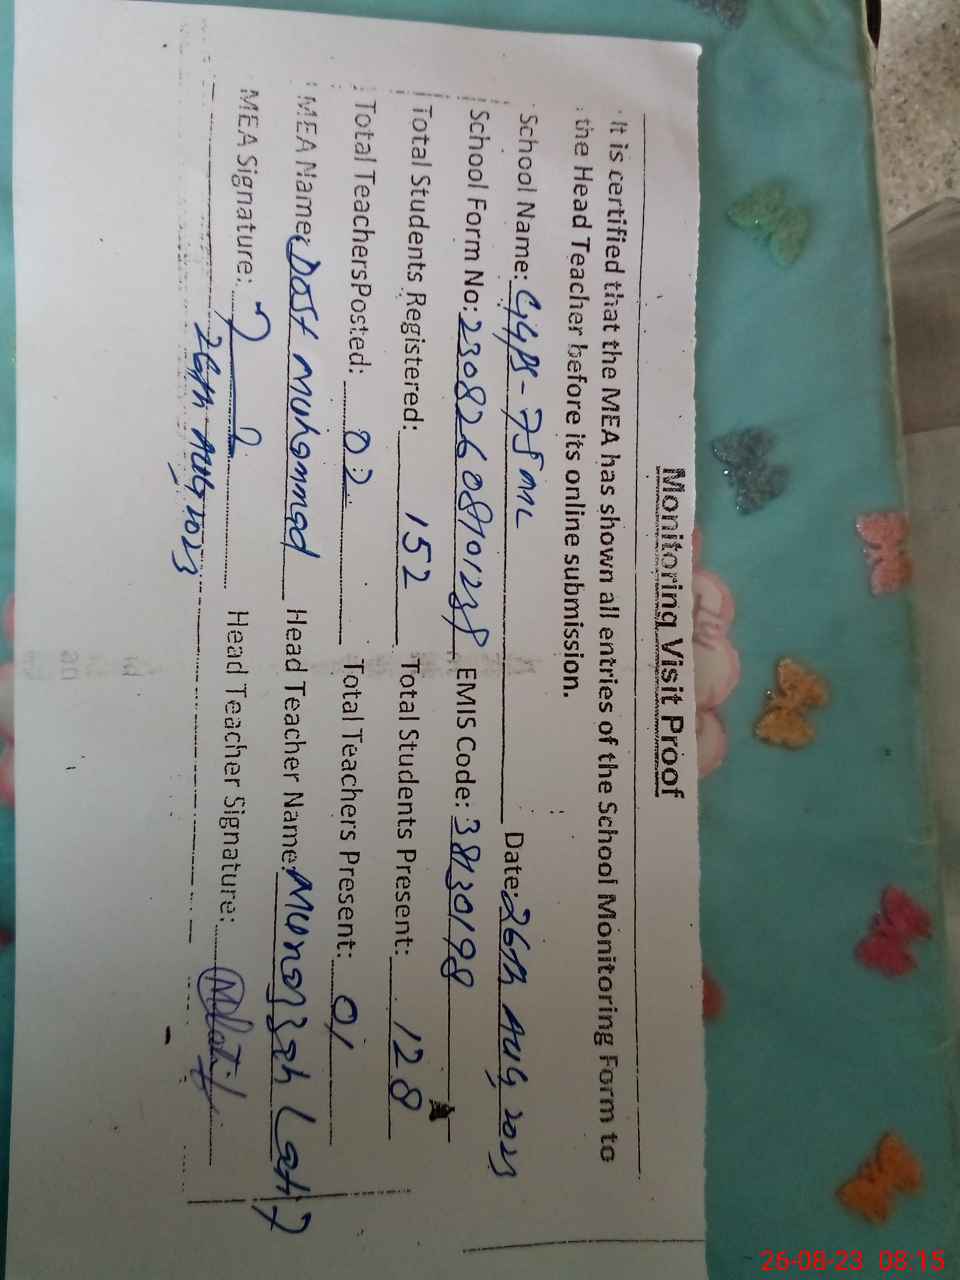 Monitoring Visit Proof
It is certified that the MEA has shown all entries of the School Monitoring Form to
the Head Teacher before its online submission.
School Name: GGPS - 75 ML Date: 26th Aug 2023
School Form No: 23082608101238 EMIS Code: 38130198
Total Students Registered: 152 Total Students Present: 128
Total TeachersPosted: 02 Total Teachers Present: 01
MEA Name: Dost Muhammad Head Teacher Name: Munazzah Latif
MEA Signature: Head Teacher Signature: MLatif
26th Aug 2023
26-08-23 08:15